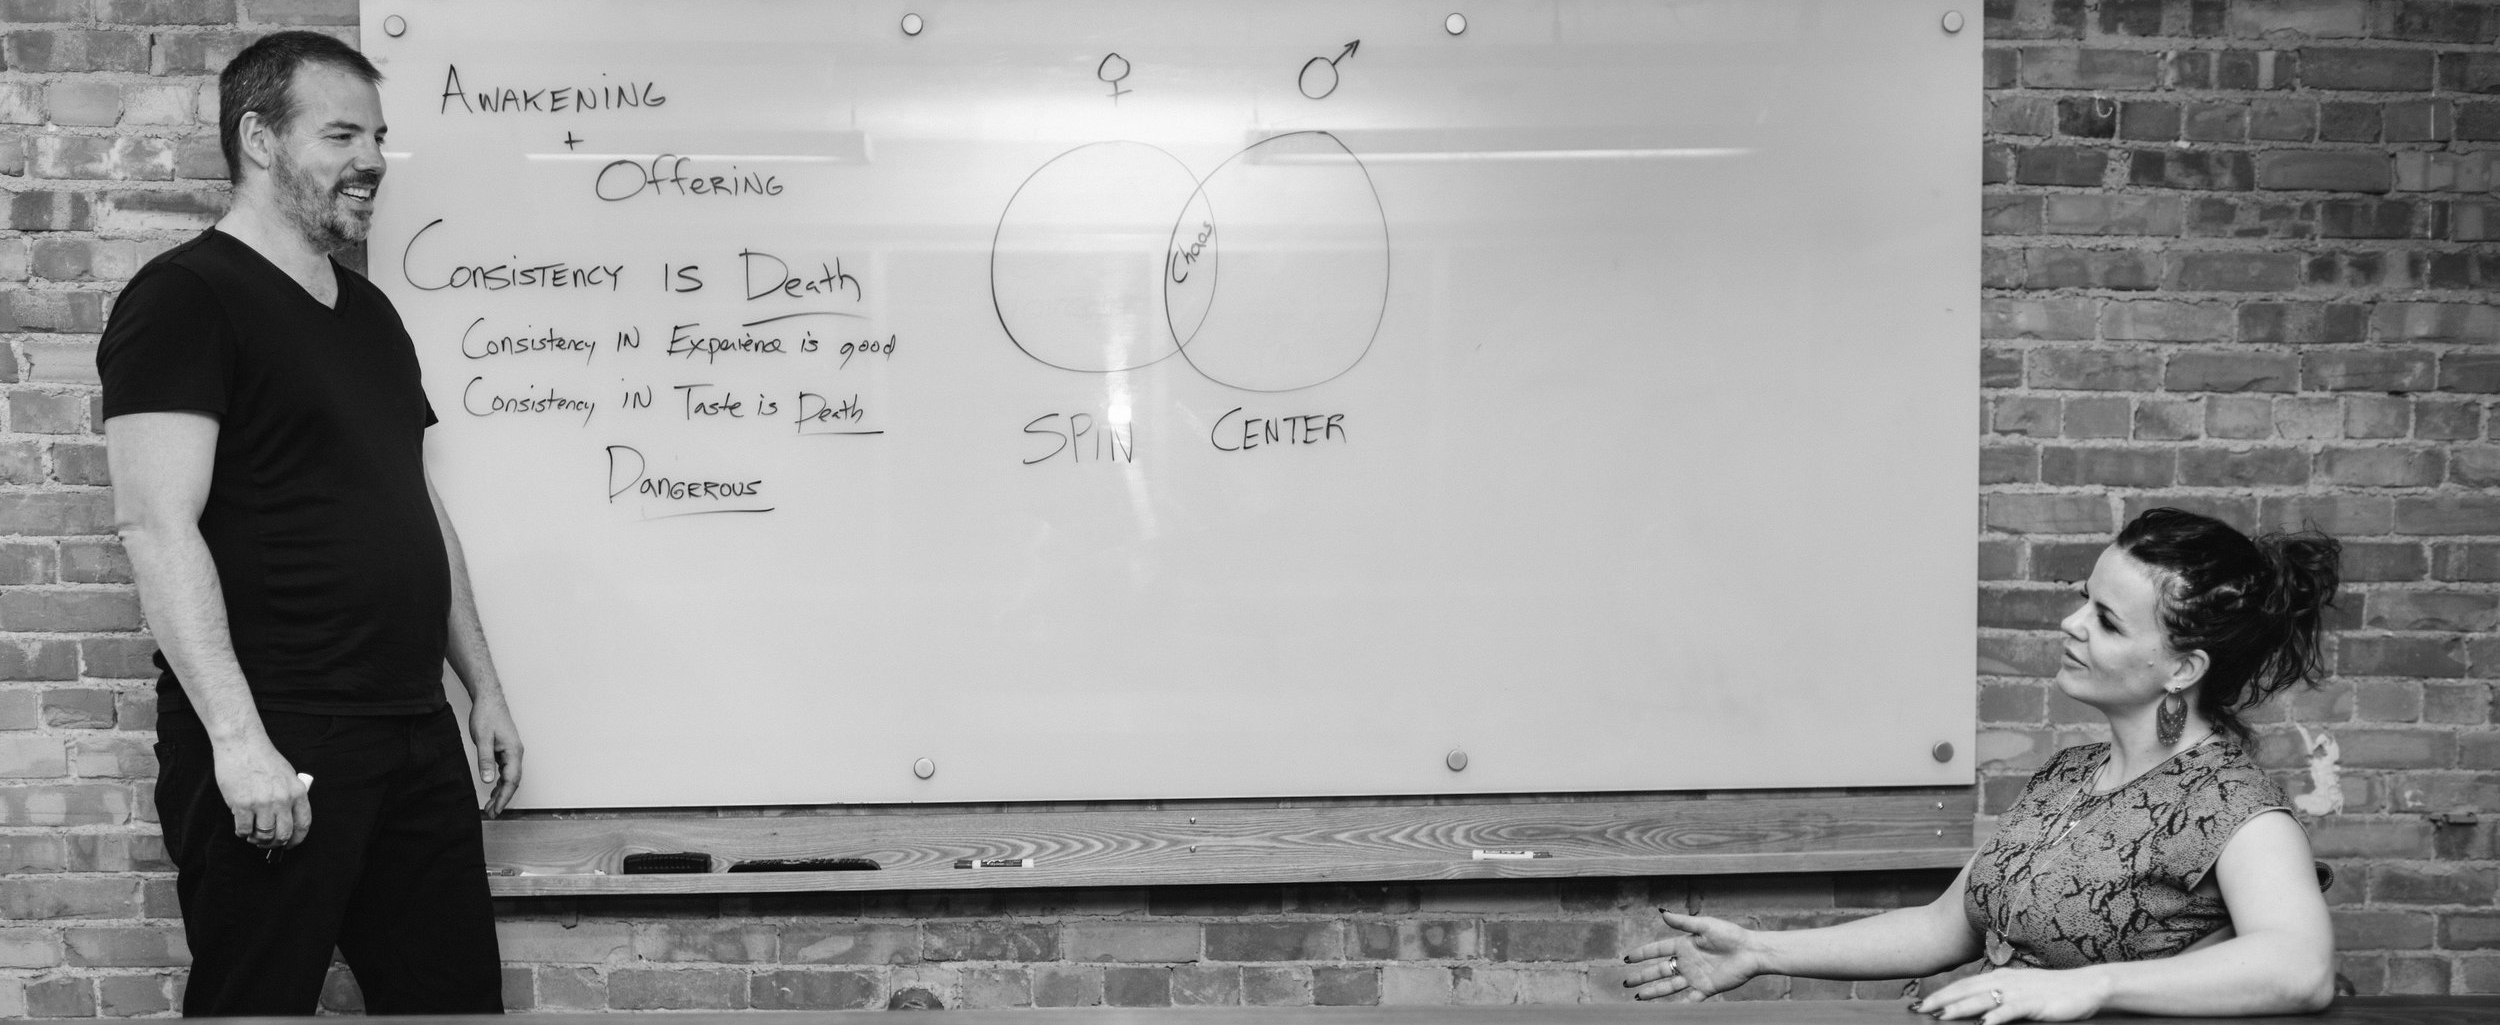 AWAKENING
+
OFFERING
CONSISTENCY IS Death
Consistency IN Experience is good
Consistency iN Taste is Death
DANGEROUS
♀ ♂
Chaos
SPIN CENTER